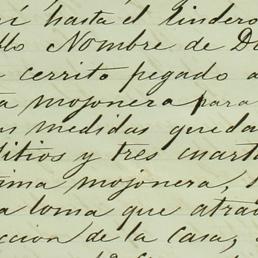 hasta el lindero
Nombre de D
cerrito pegado a
mojonera para
medidas queda
sitios y tres cuart
mojonera,
loma que atra
de la casa,